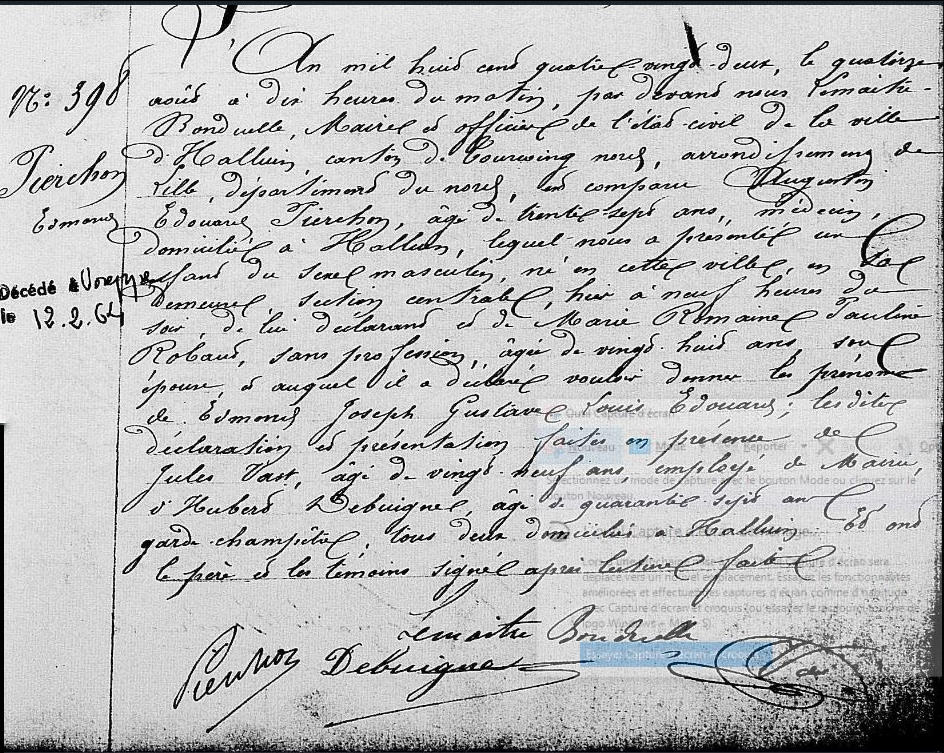 N° 398
Pierchon
Edmond
Décédé à
le 12.2.64
L'An mil huit cent quatre-vingt-deux, le quatorze
août à dix heures du matin, par devant nous Lemaitre-
Bonduelle, Maire et officier de l'état-civil de la ville
d'Halluin, canton de Tourcoing nord, arrondissement de
Lille, département du nord, est comparu Augustin
Edouard Pierchon, âgé de trente-sept ans, médecin,
domicilié à Halluin, lequel nous a présenté un
enfant du sexe masculin, né en cette ville, en sa
demeure, section centrale, hier à neuf heures du
soir, de lui déclarant et de Marie Romaine Pauline
Robaut, sans profession, âgée de vingt-huit ans, son
épouse, et auquel il a déclaré vouloir donner les prénoms
de Edmond Joseph Gustave Louis Edouard; lesdites
déclaration et présentation faites en présence de
Jules Vast, âgé de vingt-neuf ans, employé de Mairie,
d'Hubert Debuigne, âgé de quarante-sept ans
garde-champêtre, tous deux domiciliés à Halluin. Et ont
le père et les témoins signé après lecture faite
Lemaitre Bonduelle
Pierchon Debuigne
Outil Capture d'écran
Nouveau Mode
Sélectionnez un mode de capture avec le bouton Mode ou cliquez sur le
bouton Nouveau.
déplacé vers un nouvel emplacement. Essayez les fonctionnalités
améliorées et effectuez les captures d'écran comme d'habitude
Capture d'écran et croquis (ou essayez le raccourci
logo Windows + Maj + S).